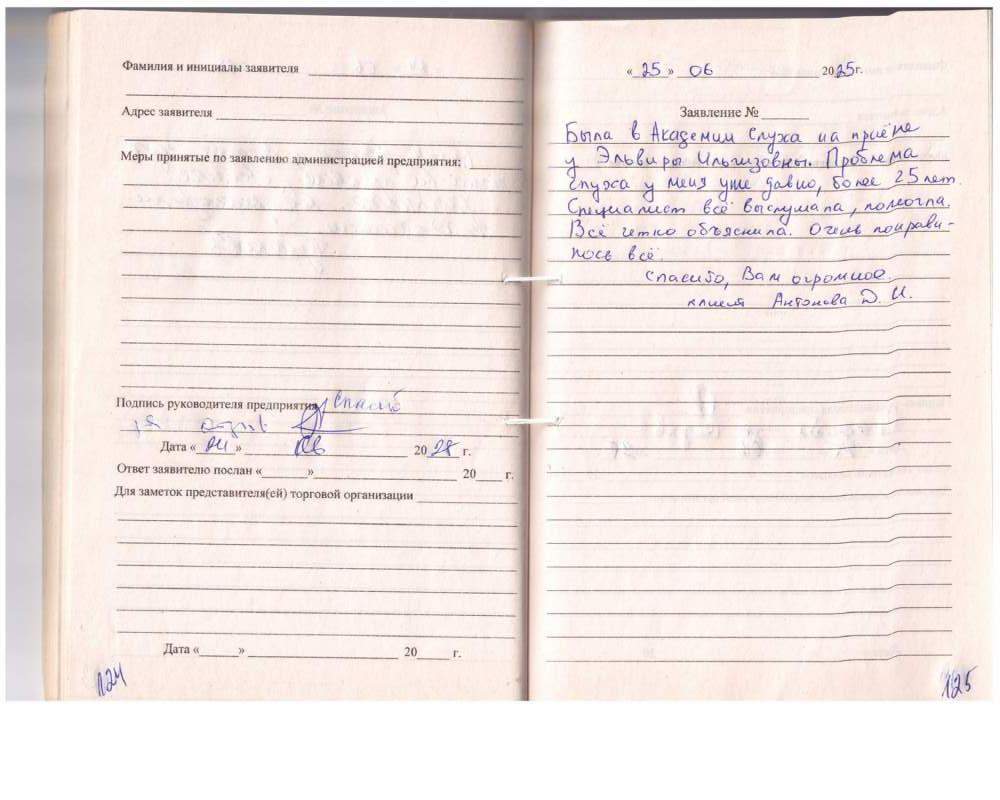 Фамилия и инициалы заявителя
Адрес заявителя
Меры принятые по заявлению администрацией предприятия:
Подпись руководителя предприятия Спасибо
Дата « » 20 г.
Ответ заявителю послан « » 20 г.
Для заметок представителя(ей) торговой организации
Дата « » 20 г.
124
«25» 06 2025г.
Заявление №
Была в Академии Слуха на приёме
у Эльвиры Ильгизовны. Проблема
слуха у меня уже давно, более 25 лет.
Специалист всё выслушала, помогла.
Всё четко объяснила. Очень понрави-
лось всё.
Спасибо, Вам огромное.
клиент Антонова Д. И.
125